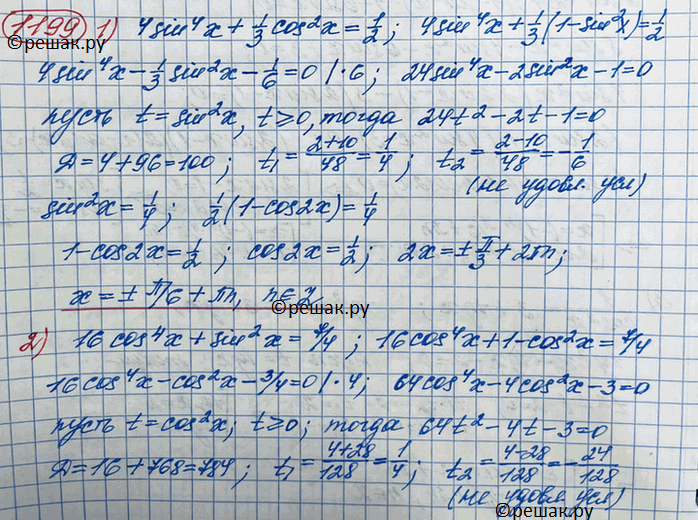 1199 1) 4sin⁴x + 1/3 cos²x = 1/2; 4sin⁴x + 1/3(1-sin²x) = 1/2
4sin⁴x - 1/3 sin²x - 1/6 = 0 |·6; 24sin⁴x - 2sin²x - 1 = 0
пусть t = sin²x, t ≥ 0, тогда 24t² - 2t - 1 = 0
Д = 4 + 96 = 100; t₁ = (2+10)/48 = 1/4; t₂ = (2-10)/48 = -1/6
(не удовл. усл)
sin²x = 1/4; 1/2(1-cos2x) = 1/4
1-cos2x = 1/2; cos2x = 1/2; 2x = ± π/3 + 2πn;
x = ± π/6 + πn, n∈Z
©решак.ру
2) 16cos⁴x + sin²x = 7/4; 16cos⁴x + 1 - cos²x = 7/4
16cos⁴x - cos²x - 3/4 = 0 |·4; 64cos⁴x - 4cos²x - 3 = 0
пусть t = cos²x; t ≥ 0; тогда 64t² - 4t - 3 = 0
Д = 16 + 768 = 784; t₁ = (4+28)/128 = 1/4; t₂ = (4-28)/128 = -24/128
(не удовл. усл)
©решак.ру
©решак.ру